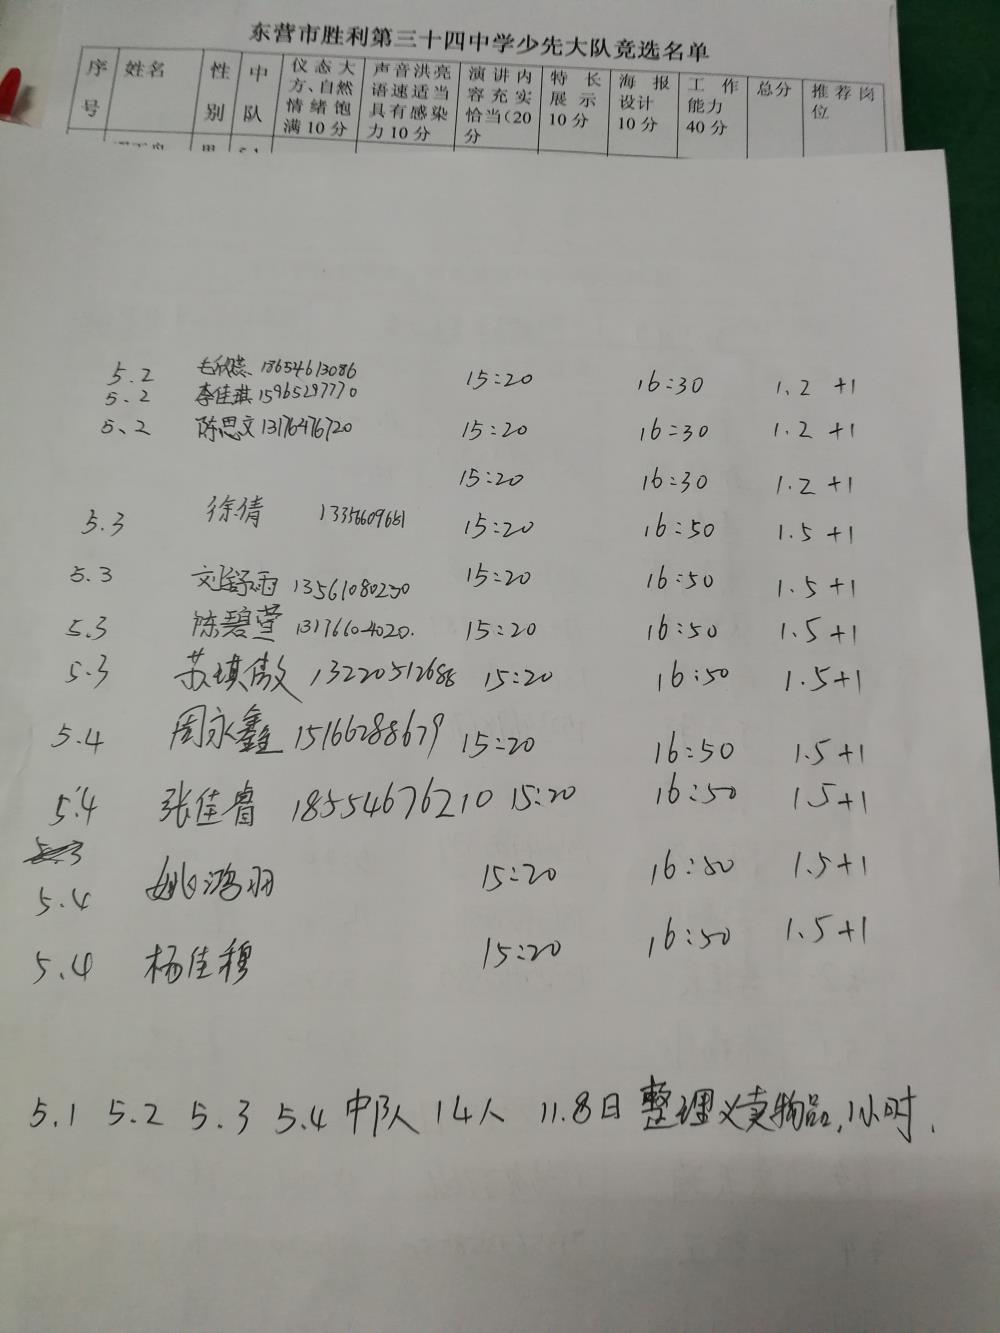 东营市胜利第三十四中学少先大队竞选名单
序号 姓名 性别 中队 仪态大方、自然情绪饱满10分 声音洪亮语速适当具有感染力10分 演讲内容充实恰当(20分 特长展示10分 海报设计10分 工作能力40分 总分 推荐岗位
5.2 毛欣蕊 18654613086 15:20 16:30 1.2 +1
5.2 李佳琪 15965297770
5.2 陈思文 13176476720 15:20 16:30 1.2 +1
15:20 16:30 1.2 +1
5.3 徐倩 13356609681 15:20 16:50 1.5 +1
5.3 刘舒雨 13561080250 15:20 16:50 1.5 +1
5.3 陈碧萱 13176604020. 15:20 16:50 1.5 +1
5.3 苏琪傲 13220512688 15:20 16:50 1.5 +1
5.4 周永鑫 15166288679 15:20 16:50 1.5 +1
5.4 张佳睿 18554676210 15:20 16:50 1.5 +1
5.4 姚鸿羽 15:20 16:50 1.5 +1
5.4 杨佳穆 15:20 16:50 1.5 +1
5.1 5.2 5.3 5.4 中队 14人 11.8日 整理义卖物品,1小时.